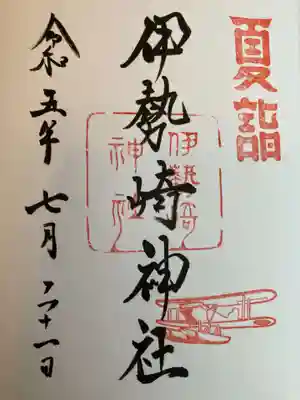 夏詣
伊勢崎神社
伊勢崎
神社
令和五年 七月二十一日